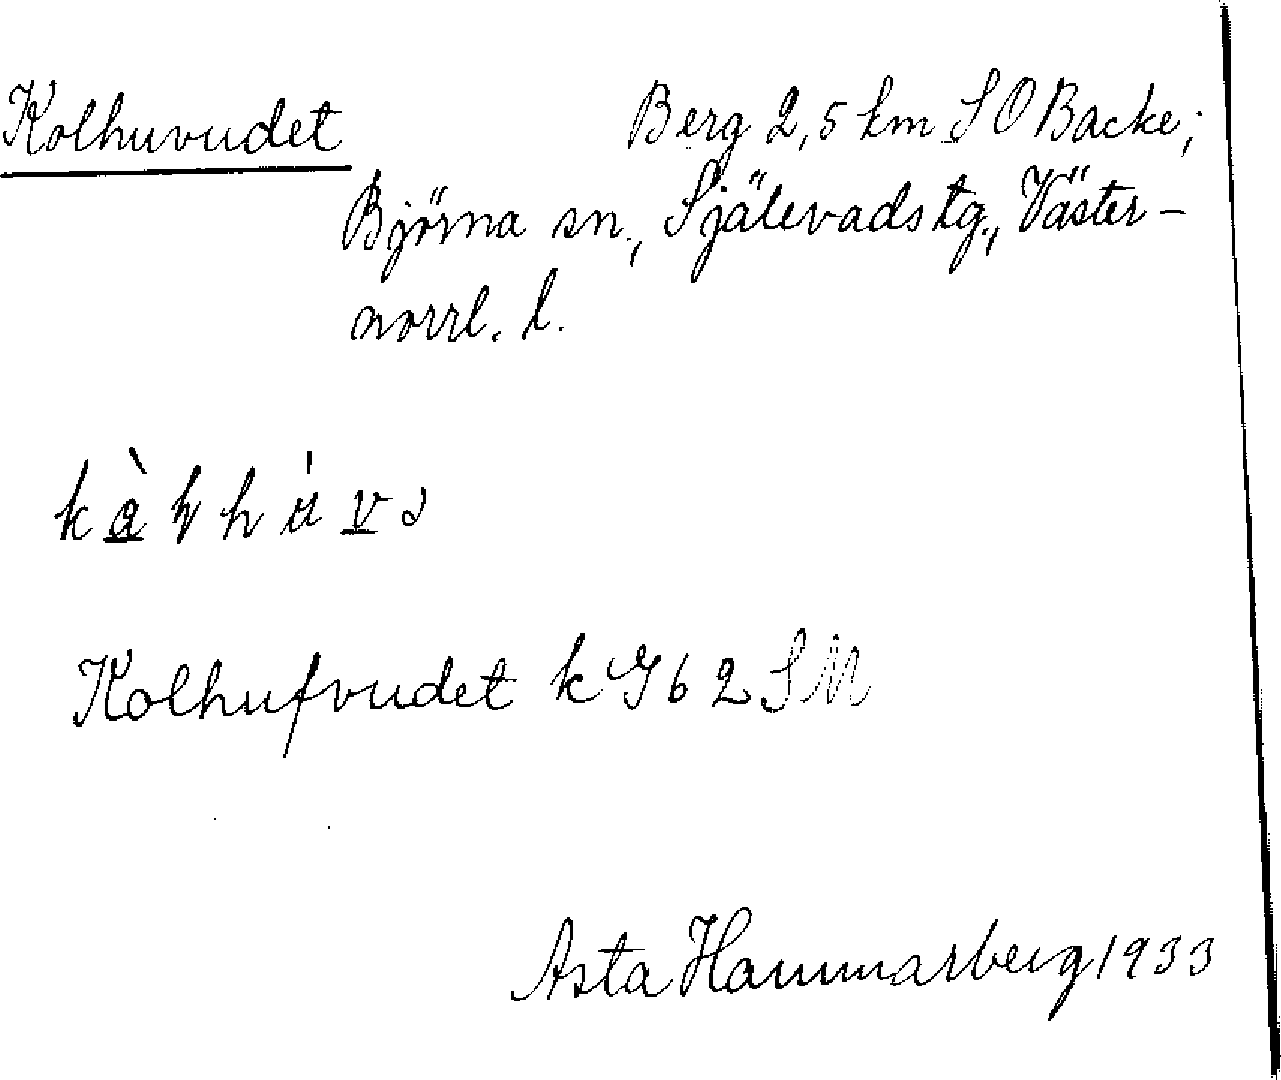 Kolhuvudet Berg 2,5 km SO Backe;
Björna sn., Själevads tg., Väster-
norrl. l.
Kolhufvudet k G 6 2 SM
Asta Hammarberg 1933